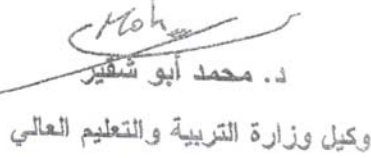 Moh
د. محمد أبو شقير
وكيل وزارة التربية والتعليم العالي